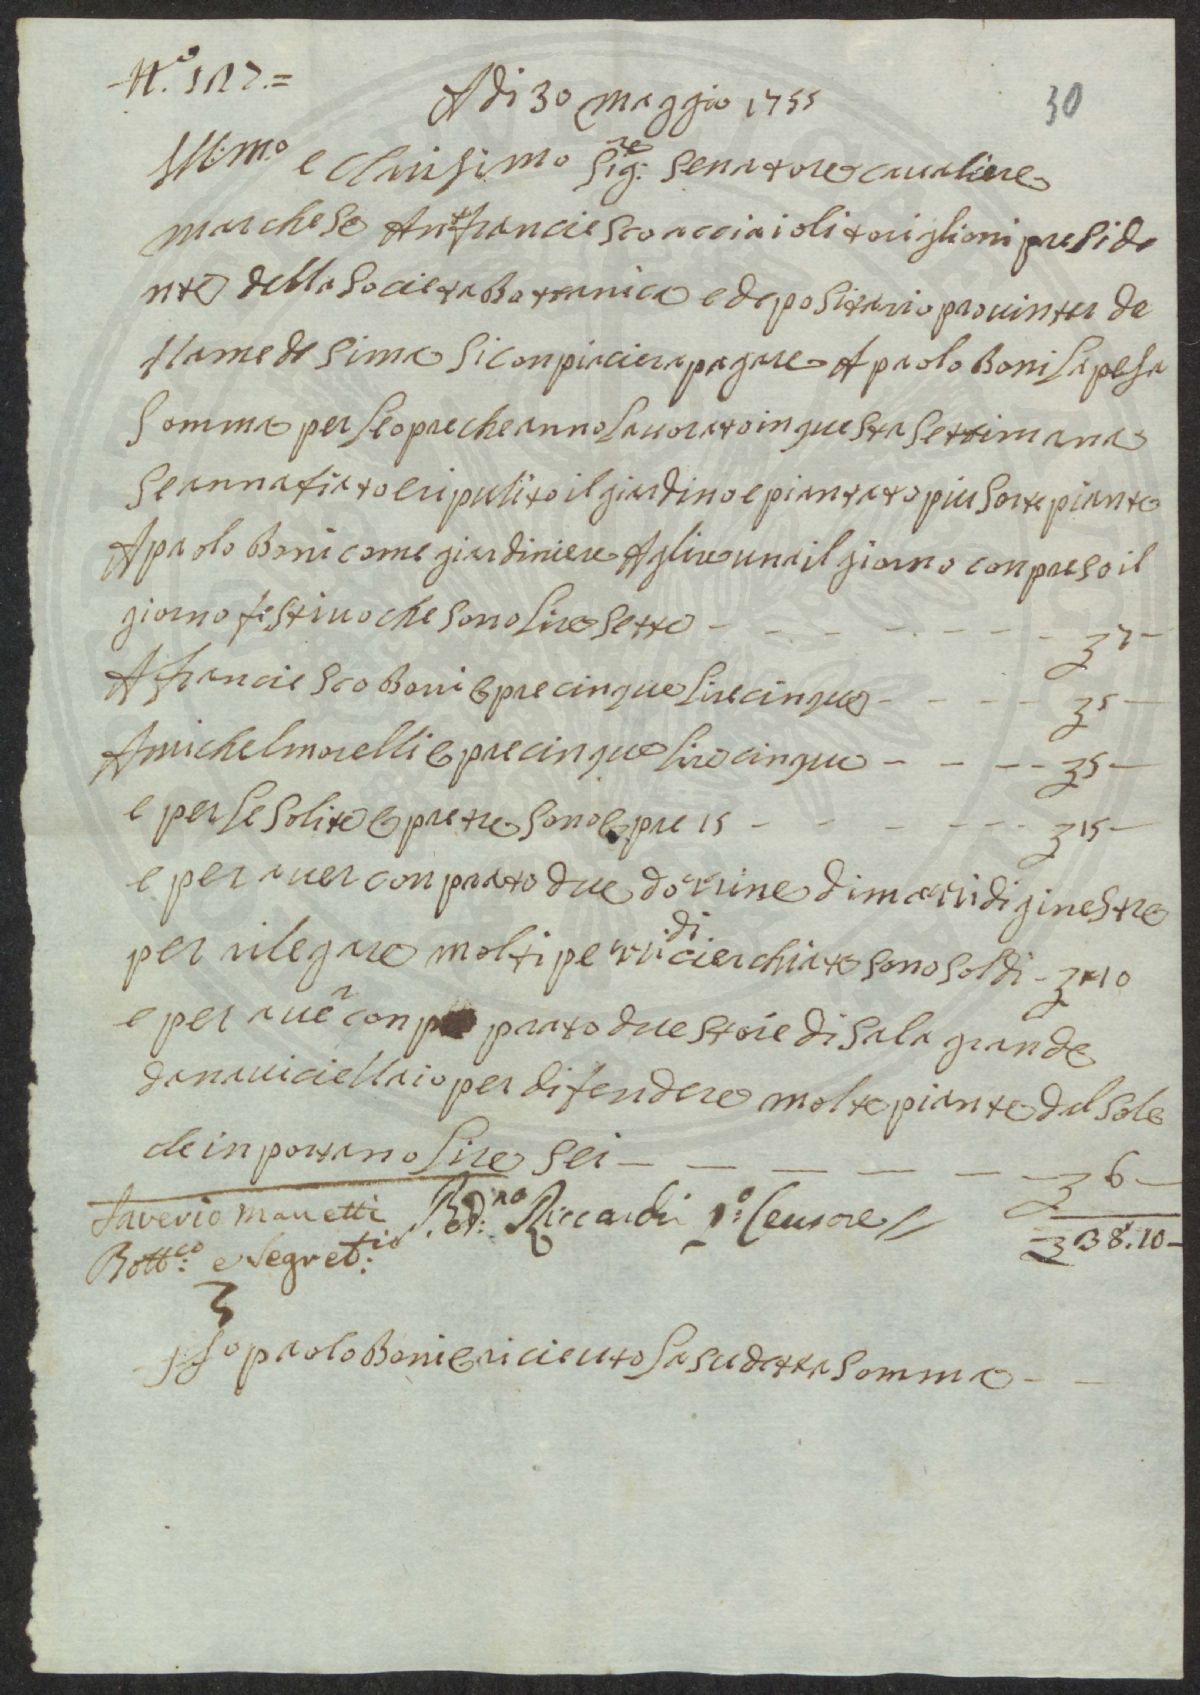 N.º 117.=
A di 30 maggio 1755
30
Ill:mo e Clarisimo Sig:re Senatore cavaliere
marchese Ant:º franciesco acciaioli toriglioni preside
nte della Societa Bottanica e depositario provinter de
llamedesima si conpiaciera pagare A paolo Boni la pesa
Somma per le opre che anno lavorato in questa settimana
Se annafiato e ripulito il giardino e piantato piu sorte piante
A paolo Boni come giardiniere A lire una il giorno conpreso il
giorno festivo che sono lire sette - - - - - - - - 7 -
A franciesco Boni opre cinque lire cinque - - - - 5 -
A michel morelli opre cinque lire cinque - - - - 5 -
e per le solite opre tre sono opre 15 - - - - - - 15 -
e per aver conprato due dozzine di mazzi di ginestre
per rilegare molti pezzi di cierchiate sono soldi - 10
e per aver conp prato due stoie di sala grande
da naviciellaio per difendere molte piante dal sole
che inportano lire sei - - - - - - 6 -
Saverio Manetti Bern:no Riccardi 1:º Censore
38.10 -
Bott:co e Segret:io
Io paolo Boni o riceuto la sudetta somma - -